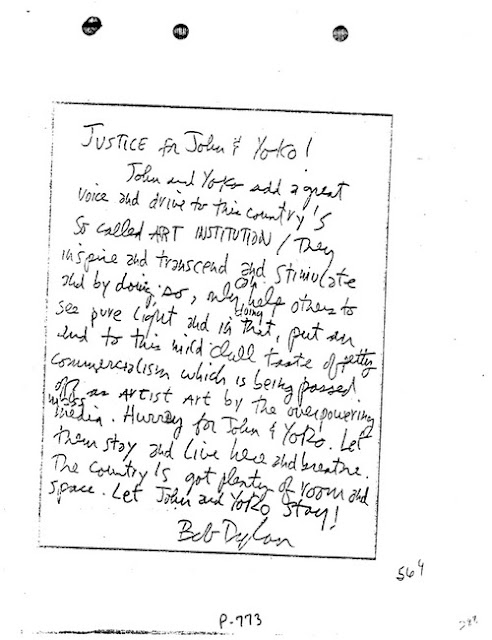 JUSTICE for John & Yoko!
John and Yoko add a great
voice and drive to this country's
so called ART INSTITUTION / They
inspire and transcend and stimulate
and by doing so, only can help others to
see pure light and in doing that, put an
end to this mild dull taste of petty
commercialism which is being passed
off as Artist Art by the overpowering
mass media. Hurray for John & Yoko. Let
them stay and live here and breathe.
The country's got plenty of room and
space. Let John and Yoko stay!
Bob Dylan
564
P-773